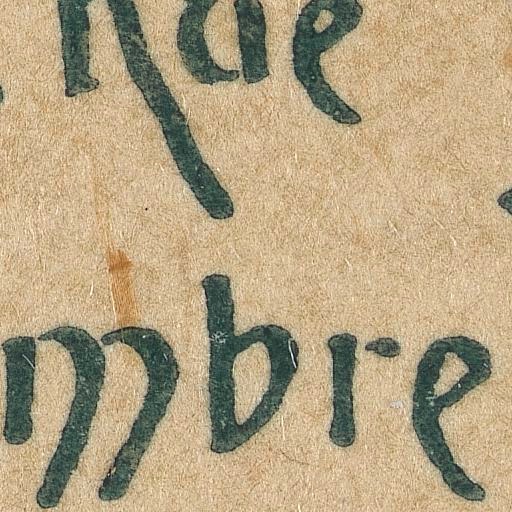 Rae
mbre